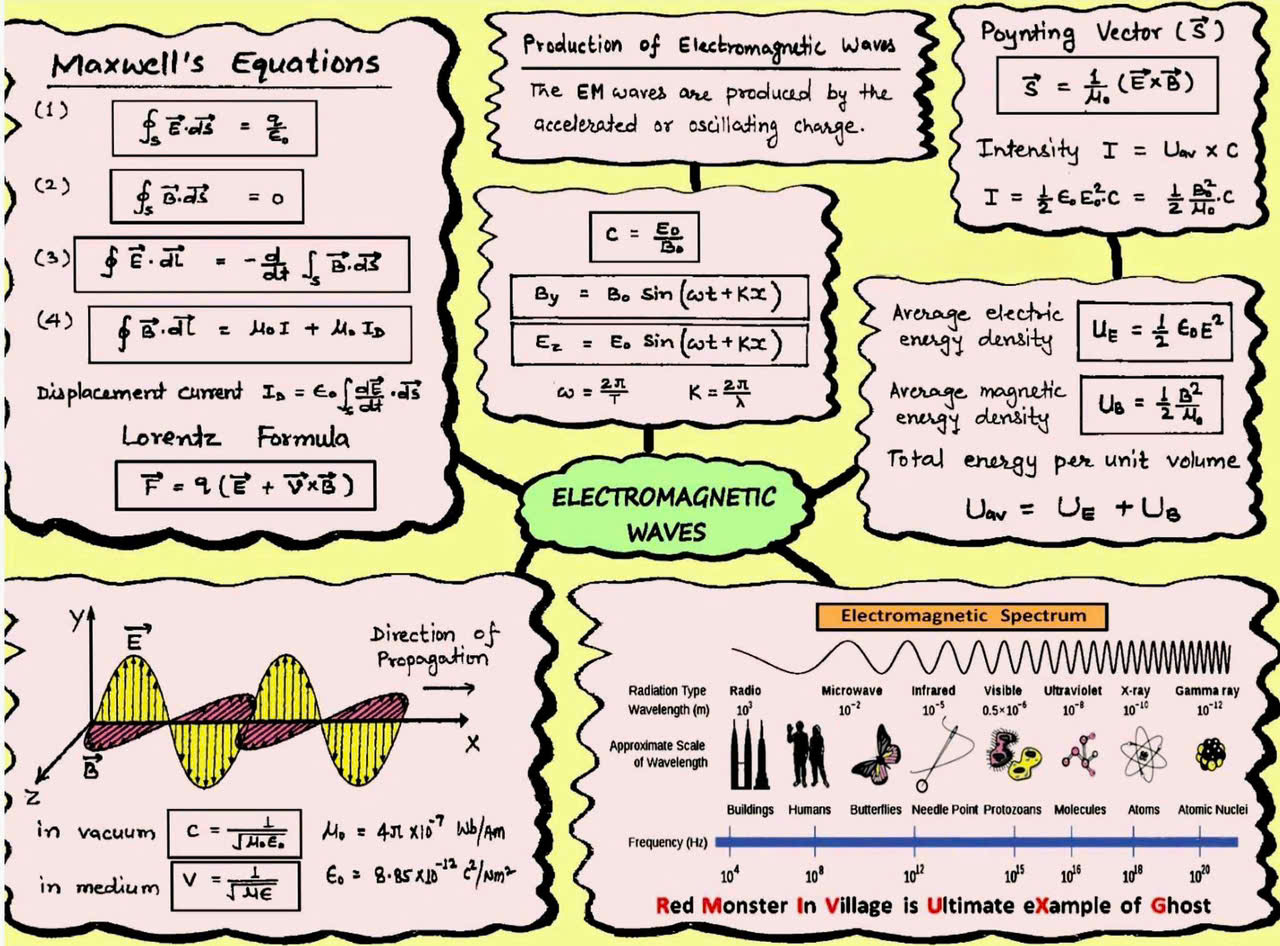 Maxwell's Equations
(1) ∮ₛ E⃗·dS⃗ = q/ϵ₀
(2) ∮ₛ B⃗·dS⃗ = 0
(3) ∮ E⃗·dl⃗ = -d/dt ∫ₛ B⃗·dS⃗
(4) ∮ B⃗·dl⃗ = μ₀I + μ₀ I_D
Displacement current I_D = ϵ₀∫ₛ dE⃗/dt·dS⃗
Lorentz Formula
F⃗ = q (E⃗ + V⃗×B⃗)
Production of Electromagnetic Waves
The EM waves are produced by the
accelerated or oscillating charge.
C = E₀/B₀
By = B₀ sin(ωt+Kx)
Ez = E₀ sin(ωt+Kx)
ω = 2π/T K = 2π/λ
Poynting Vector (S⃗)
S⃗ = 1/μ₀ (E⃗×B⃗)
Intensity I = Uav × C
I = ½ ϵ₀E₀²·C = ½ B₀²/μ₀·C
Average electric
energy density
U_E = ½ ϵ₀E²
Average magnetic
energy density
U_B = ½ B²/μ₀
Total energy per unit volume
Uav = U_E + U_B
ELECTROMAGNETIC
WAVES
Y
E⃗
Direction of
Propagation
X
B⃗
Z
in vacuum C = 1/√μ₀ϵ₀ μ₀ = 4π×10⁻⁷ Wb/Am
in medium V = 1/√μϵ ϵ₀ = 8.85×10⁻¹² C²/Nm²
Electromagnetic Spectrum
Radiation Type Radio Microwave Infrared Visible Ultraviolet X-ray Gamma ray
Wavelength (m) 10³ 10⁻² 10⁻⁵ 0.5×10⁻⁶ 10⁻⁸ 10⁻¹⁰ 10⁻¹²
Approximate Scale
of Wavelength
Buildings Humans Butterflies Needle Point Protozoans Molecules Atoms Atomic Nuclei
Frequency (Hz)
10⁴ 10⁸ 10¹² 10¹⁵ 10¹⁶ 10¹⁸ 10²⁰
Red Monster In Village is Ultimate eXample of Ghost